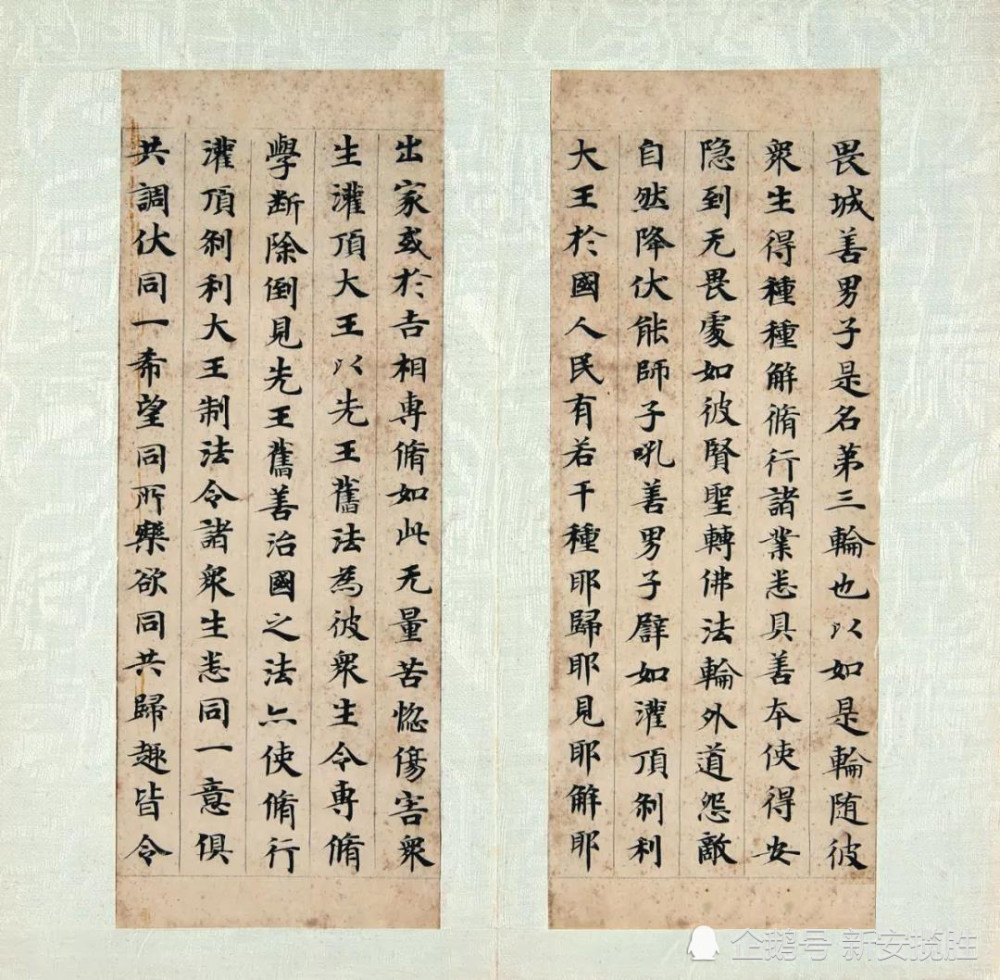 畏城善男子是名第三輪也以如是輪随彼
衆生得種種解脩行諸業悉具善夲使得安
隐到无畏處如彼賢聖轉佛法輪外道怨敵
自然降伏能師子吼善男子譬如灌頂刹利
大王於國人民有若干種耶歸耶見耶解耶
出家或於吉相専脩如此无量苦惚傷害衆
生灌頂大王以先王舊法為彼衆生令専脩
學断除倒見先王舊善治國之法亦使脩行
灌頂刹利大王制法令諸衆生悉同一意俱
共調伏同一希望同所樂欲同共歸趣皆令
企鹅号 新安揽胜